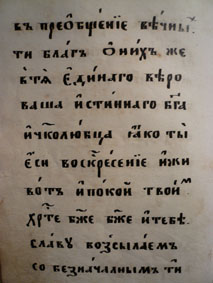 въ преѡбщенїе вѣчныⷯ
ти благъ ѡ ни́хъ же
в̾тѧ̀ є҆ди́наго вѣро
ваша и҆́стиннаго бг҃а
и҆ чл҃колю́бца ꙗ҆́ко ты̀
є҆сѝ воскр҃се́нїе и҆ жи
во́тъ и҆ поко́й тво́имⷨ
хрⷭ҇тѐ бж҃е бж҃е и҆ тебѣ̀
сла́ву возсыла́емъ
со безнача́лнымъ ти